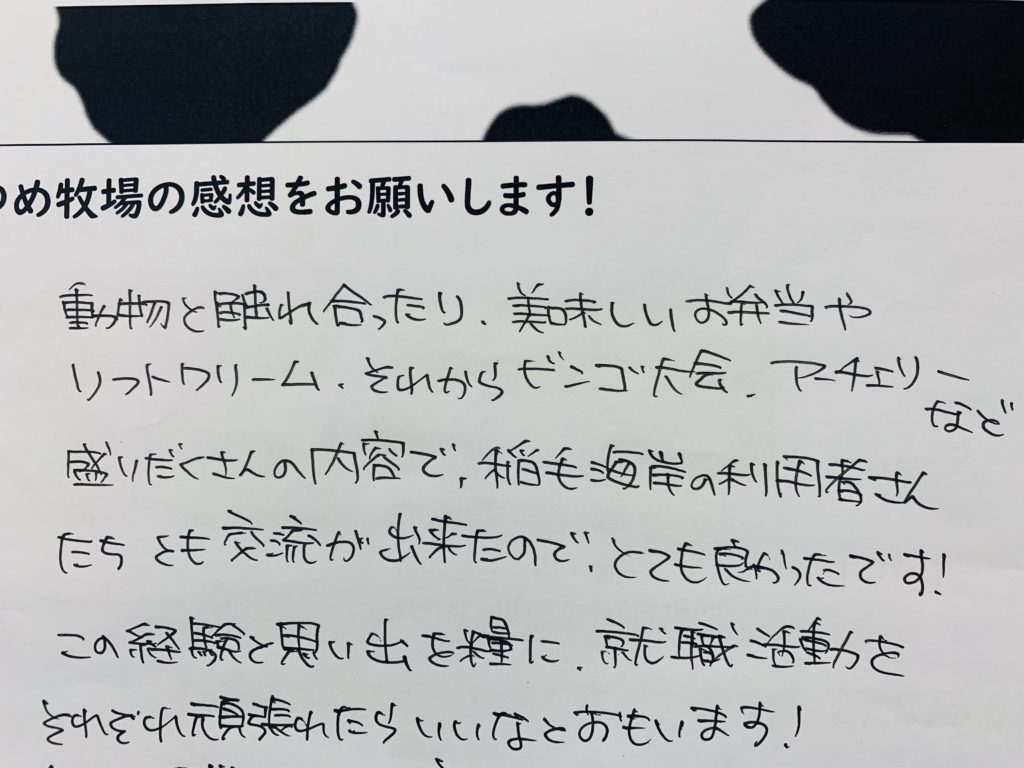 ゆめ牧場の感想をお願いします!
動物と触れ合ったり、美味しいお弁当や
ソフトクリーム、それからビンゴ大会、アーチェリー
など
盛りだくさんの内容で、稲毛海岸の利用者さん
たちとも交流が出来たので、とても良かったです!
この経験と思い出を糧に、就職活動を
それぞれ頑張れたらいいなとおもいます!